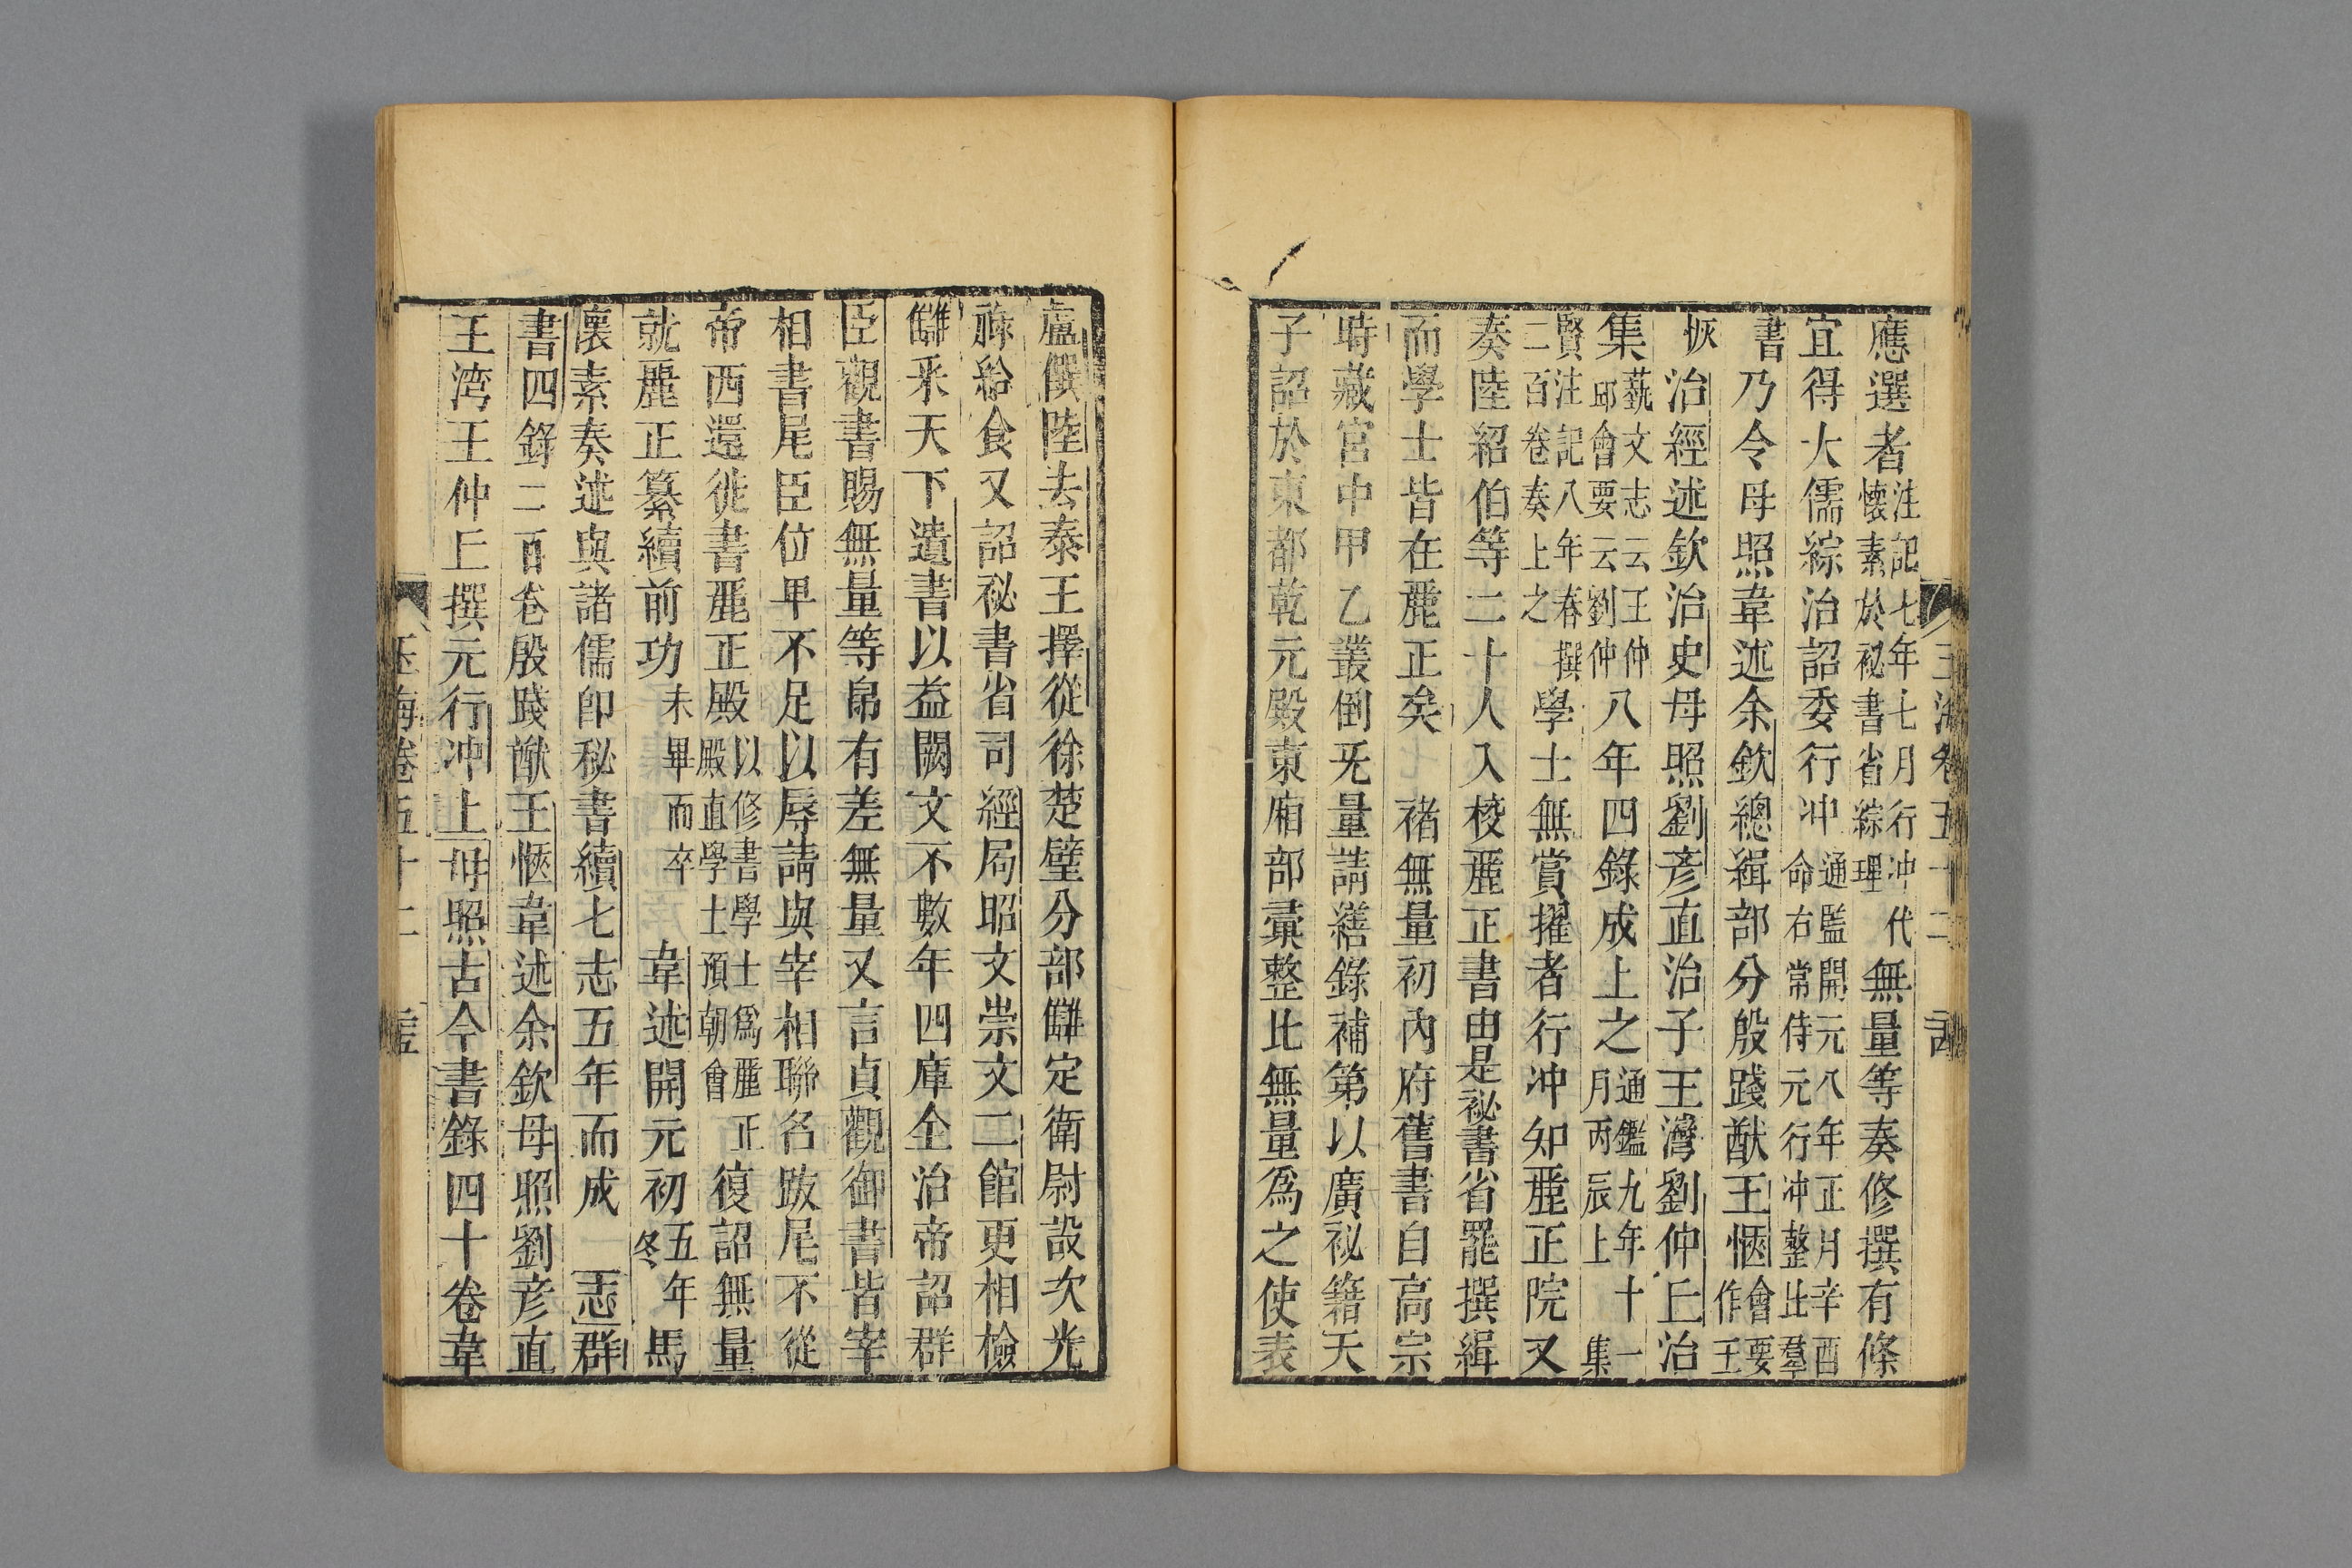 玉海卷五十二
應選者注記七年七月行冲代懷素於祕書省綜理無量等奏修撰有條
宜得大儒綜治詔委行冲通監開元八年正月辛酉命右常侍元行冲整比羣
書乃令毋照韋述余欽總緝部分殷踐猷王愜會要作王
恢治經述欽治史毋照劉彦直治子王灣劉仲丘治
集藝文志云王仲邱會要云劉仲八年四錄成上之通鑑九年十一月丙辰上集
賢注記八年春撰二百卷奏上之學士無賞擢者行冲知麗正院又
奏陸紹伯等二十人入校麗正書由是祕書省罷撰緝
而學士皆在麗正矣 褚無量初內府舊書自高宗
時藏宮中甲乙叢倒旡量請繕錄補第以廣祕籍天
子詔於東都乾元殿東廂部彚整比無量爲之使表
盧僎陸去泰王擇從徐楚璧分部讎定衛尉設次光
祿給食又詔祕書省司經局昭文崇文二館更相檢
讎采天下遺書以益闕文不數年四庫全治帝詔群
臣觀書賜無量等帛有差無量又言貞觀御書皆宰
相書尾臣位卑不足以辱請與宰相聯名跋尾不從
帝西還徙書麗正殿以修書學士爲麗正殿直學士預朝會復詔無量
就麗正纂續前功未畢而卒 韋述開元初五年冬馬
懷素奏述與諸儒卽秘書續七志五年而成 志群
書四錄二百卷殷踐猷王愜韋述余欽毋照劉彦直
王湾王仲丘撰元行冲上毋照古今書錄四十卷韋
玉海卷五十二